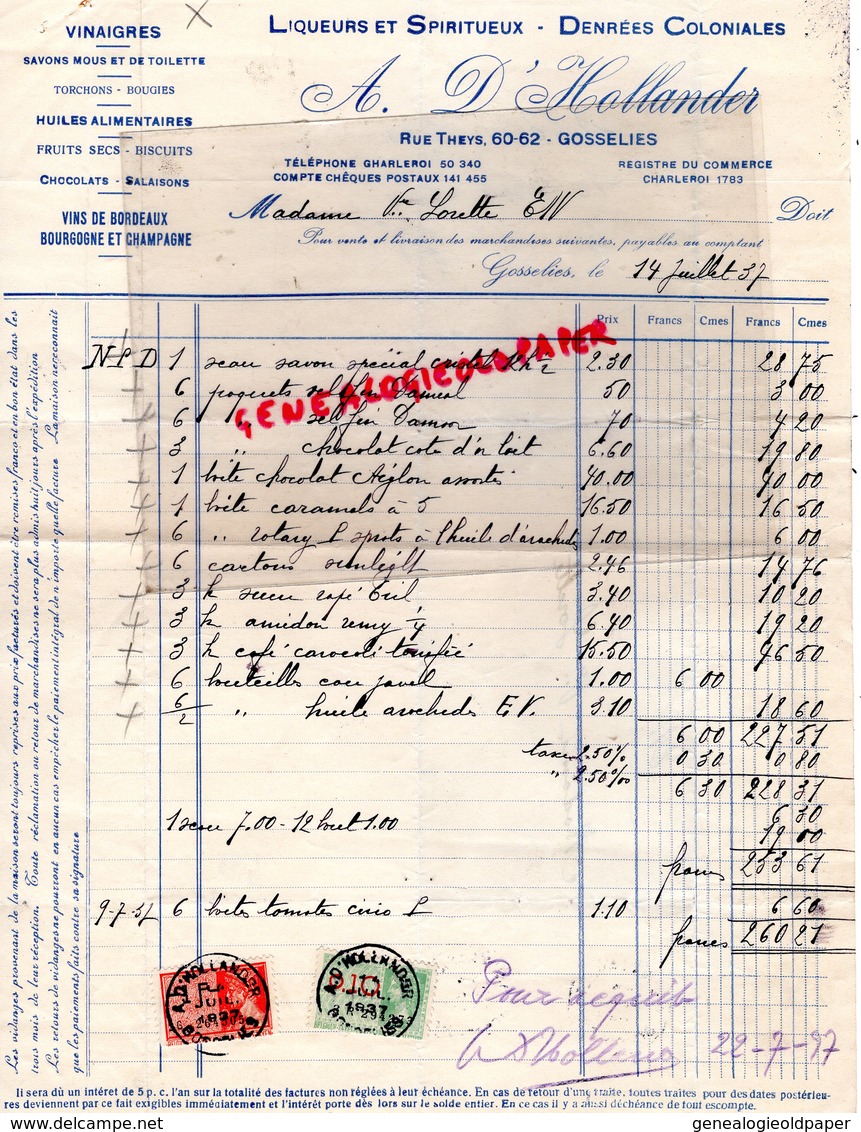 VINAIGRES
SAVONS MOUS ET DE TOILETTE
TORCHONS - BOUGIES
HUILES ALIMENTAIRES
FRUITS SECS - BISCUITS
CHOCOLATS - SALAISONS
VINS DE BORDEAUX
BOURGOGNE ET CHAMPAGNE
LIQUEURS ET SPIRITUEUX - DENRÉES COLONIALES
A. D'Hollander
RUE THEYS, 60-62 - GOSSELIES
TÉLÉPHONE GHARLEROI 50 340
COMPTE CHÈQUES POSTAUX 141 455
REGISTRE DU COMMERCE
CHARLEROI 1783
Madame Ve Lorette E/V Doit
Pour vente et livraison des marchandises suivantes, payables au comptant
Gosselies, le 14 Juillet 37
Prix Francs Cmes Francs Cmes
1 seau savon spécial cristal 2.30 28 75
GENEALOGIEOLDPAPER
6 paquets sel fin 50 3 00
6 " sel fin 70 4 20
3 " chocolat cote d'or lait 6.60 19 80
1 boite chocolat Aiglon assortis 40.00 40 00
1 boite caramels à 5 16.50 16 50
6 " rotary sprots à l'huile d'arachides 1.00 6 00
6 cartons sunlight 2.46 14 76
3 k 3.40 10 20
3 k amidon remy 1/4 6.40 19 20
3 k café torréfié 15.50 46 50
6 bouteilles eau javel 1.00 6 00
6/2 " huile arachides E.V. 3.10 18 60
6 00 227 51
taxe 2.50% 0 30 0 80
" 2.50‰
6 30 228 31
6 30
1 seau 7.00 - 12 bout 1.00 19 00
francs 253 61
9-7-37 6 boites tomates cirio 1.10 6 60
francs 260 21
A. D'HOLLANDER
JUIL.
1937
GOSSELIES
A. D'HOLLANDER
JUIL.
1937
GOSSELIES
Pour acquit
D'Hollander 22-7-37
Les vidanges provenant de la maison seront toujours reprises aux prix facturés et doivent être remises franco et en bon état dans les
trois mois de leur réception. Toute réclamation ou retour de marchandises ne sera plus admis huit jours après l'expédition
Les retours de vidanges ne pourront en aucun cas empêcher le paiement intégral de n importe quelle facture La maison ne reconnait
que les paiements faits contre sa signature
Il sera dû un intéret de 5 p. c. l'an sur la totalité des factures non réglées à leur échéance. En cas de retour d'une traite, toutes traites pour des dates postérieu-
res deviennent par ce fait exigibles immédiatement et l'intérêt porte dès lors sur le solde entier. En ce cas il y a aussi déchéance de tout escompte.
www.delcampe.net
genealogieoldpaper